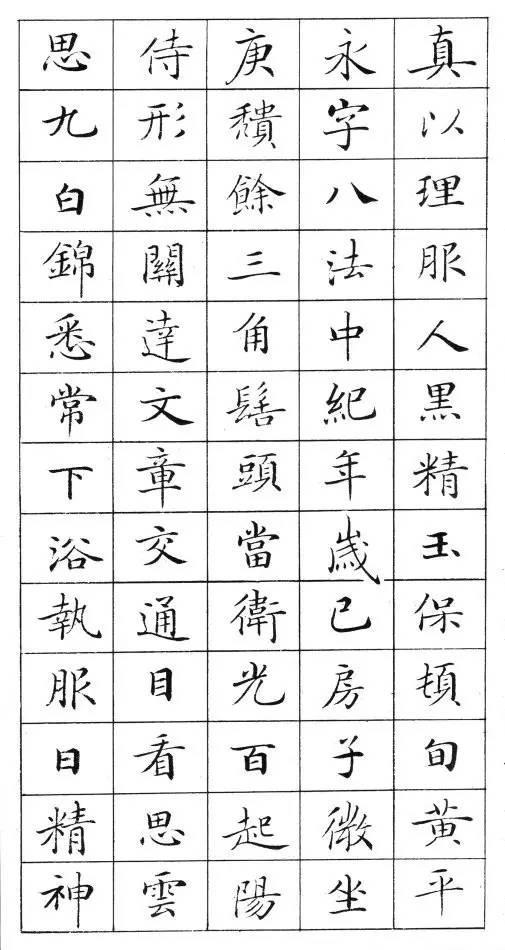 真以理服人黑精玉保頓旬黄平
永字八法中紀年歲已房子微坐
庚穨餘三角髻頭當衛光百起陽
侍形無關達文章交通目看思雲
思九白錦悉常下浴執服日精神